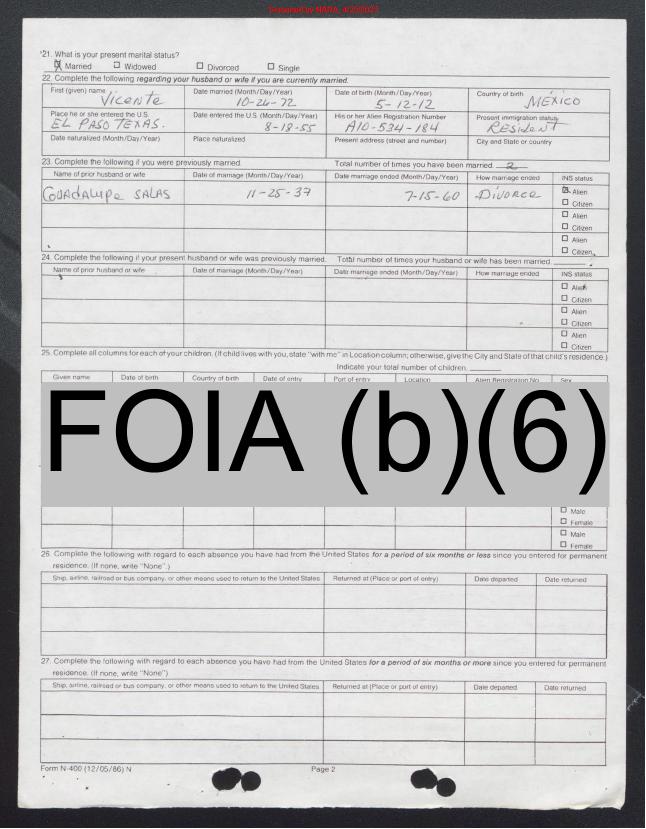 Screened by NARA, 4/20/2023
21. What is your present marital status?
☒ Married ☐ Widowed ☐ Divorced ☐ Single
22. Complete the following regarding your husband or wife if you are currently married.
First (given) name Date married (Month/Day/Year) Date of birth (Month/Day/Year) Country of birth
Vicente 10-26-72 5-12-12 MEXICO
Place he or she entered the U.S. Date entered the U.S. (Month/Day/Year) His or her Alien Registration Number Present immigration status
EL PASO TEXAS. 8-18-55 A10-534-184 Resident
Date naturalized (Month/Day/Year) Place naturalized Present address (street and number) City and State or country
23. Complete the following if you were previously married. Total number of times you have been married. 2
Name of prior husband or wife Date of marriage (Month/Day/Year) Date marriage ended (Month/Day/Year) How marriage ended INS status
Guadalupe SALAS 11-25-37 7-15-60 Divorce ☒ Alien
☐ Citizen
☐ Alien
☐ Citizen
☐ Alien
☐ Citizen
24. Complete the following if your present husband or wife was previously married. Total number of times your husband or wife has been married.
Name of prior husband or wife Date of marriage (Month/Day/Year) Date marriage ended (Month/Day/Year) How marriage ended INS status
☐ Alien
☐ Citizen
☐ Alien
☐ Citizen
☐ Alien
☐ Citizen
25. Complete all columns for each of your children. (If child lives with you, state "with me" in Location column; otherwise, give the City and State of that child's residence.)
Indicate your total number of children.
Given name Date of birth Country of birth Date of entry Port of entry Location Alien Registration No. Sex
FOIA (b)(6)
☐ Male
☐ Female
☐ Male
☐ Female
26. Complete the following with regard to each absence you have had from the United States for a period of six months or less since you entered for permanent
residence. (If none, write "None".)
Ship, airline, railroad or bus company, or other means used to return to the United States Returned at (Place or port of entry) Date departed Date returned
27. Complete the following with regard to each absence you have had from the United States for a period of six months or more since you entered for permanent
residence. (If none, write "None")
Ship, airline, railroad or bus company, or other means used to return to the United States Returned at (Place or port of entry) Date departed Date returned
Form N-400 (12/05/86) N Page 2